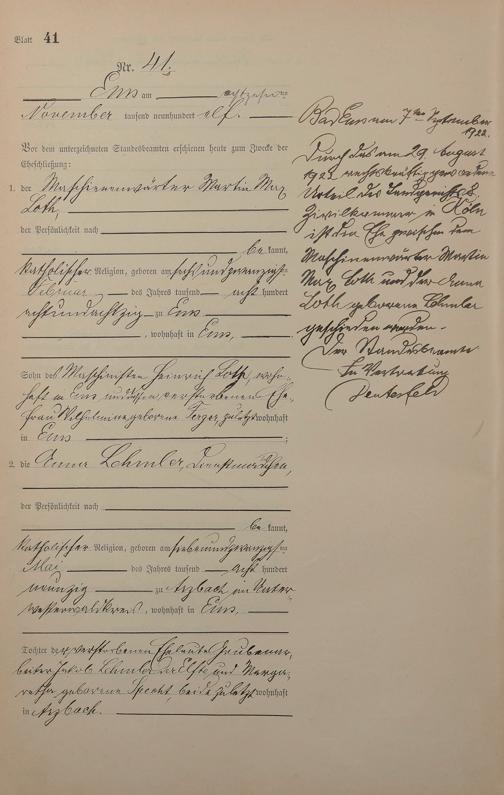 Blatt 41
Nr. 41.
Ems am achtzehnten
November tausend neunhundert elf.
Vor dem unterzeichneten Standesbeamten erschienen heute zum Zwecke der
Eheschließung:
1. der Maschinenwärter Martin Max
Loth,
der Persönlichkeit nach
bekannt,
katholischer Religion, geboren am sechsundzwanzigsten
Februar des Jahres tausend acht hundert
achtundachtzig zu Ems
, wohnhaft in Ems,
Sohn des Maschinisten Heinrich Loth, wohn-
haft in Ems und dessen verstorbenen Ehe-
frau Wilhelmine geborene zuletzt wohnhaft
in Ems ;
2. die Anna Lehmler, Dienstmädchen,
der Persönlichkeit nach
bekannt,
katholischer Religion, geboren am siebenundzwanzigsten
Mai des Jahres tausend acht hundert
neunzig zu Arzbach im Unter-
westerwaldkreis, wohnhaft in Ems,
Tochter der verstorbenen Eheleute Grubenar-
beiter Jakob Lehmler der Elfte und Marga-
retha geborene Specht, beide zuletzt wohnhaft
in Arzbach.
Bad Ems am 7ten September
1922.
Durch das am 29. August
1922 rechtskräftig gewordene
Urteil des Landgerichts
Zivilkammer in Köln
ist die Ehe zwischen dem
Maschinenwärter Martin
Max Loth und der Anna
Loth geborene Lehmler
geschieden worden.
Der Standesbeamte
In Vertretung